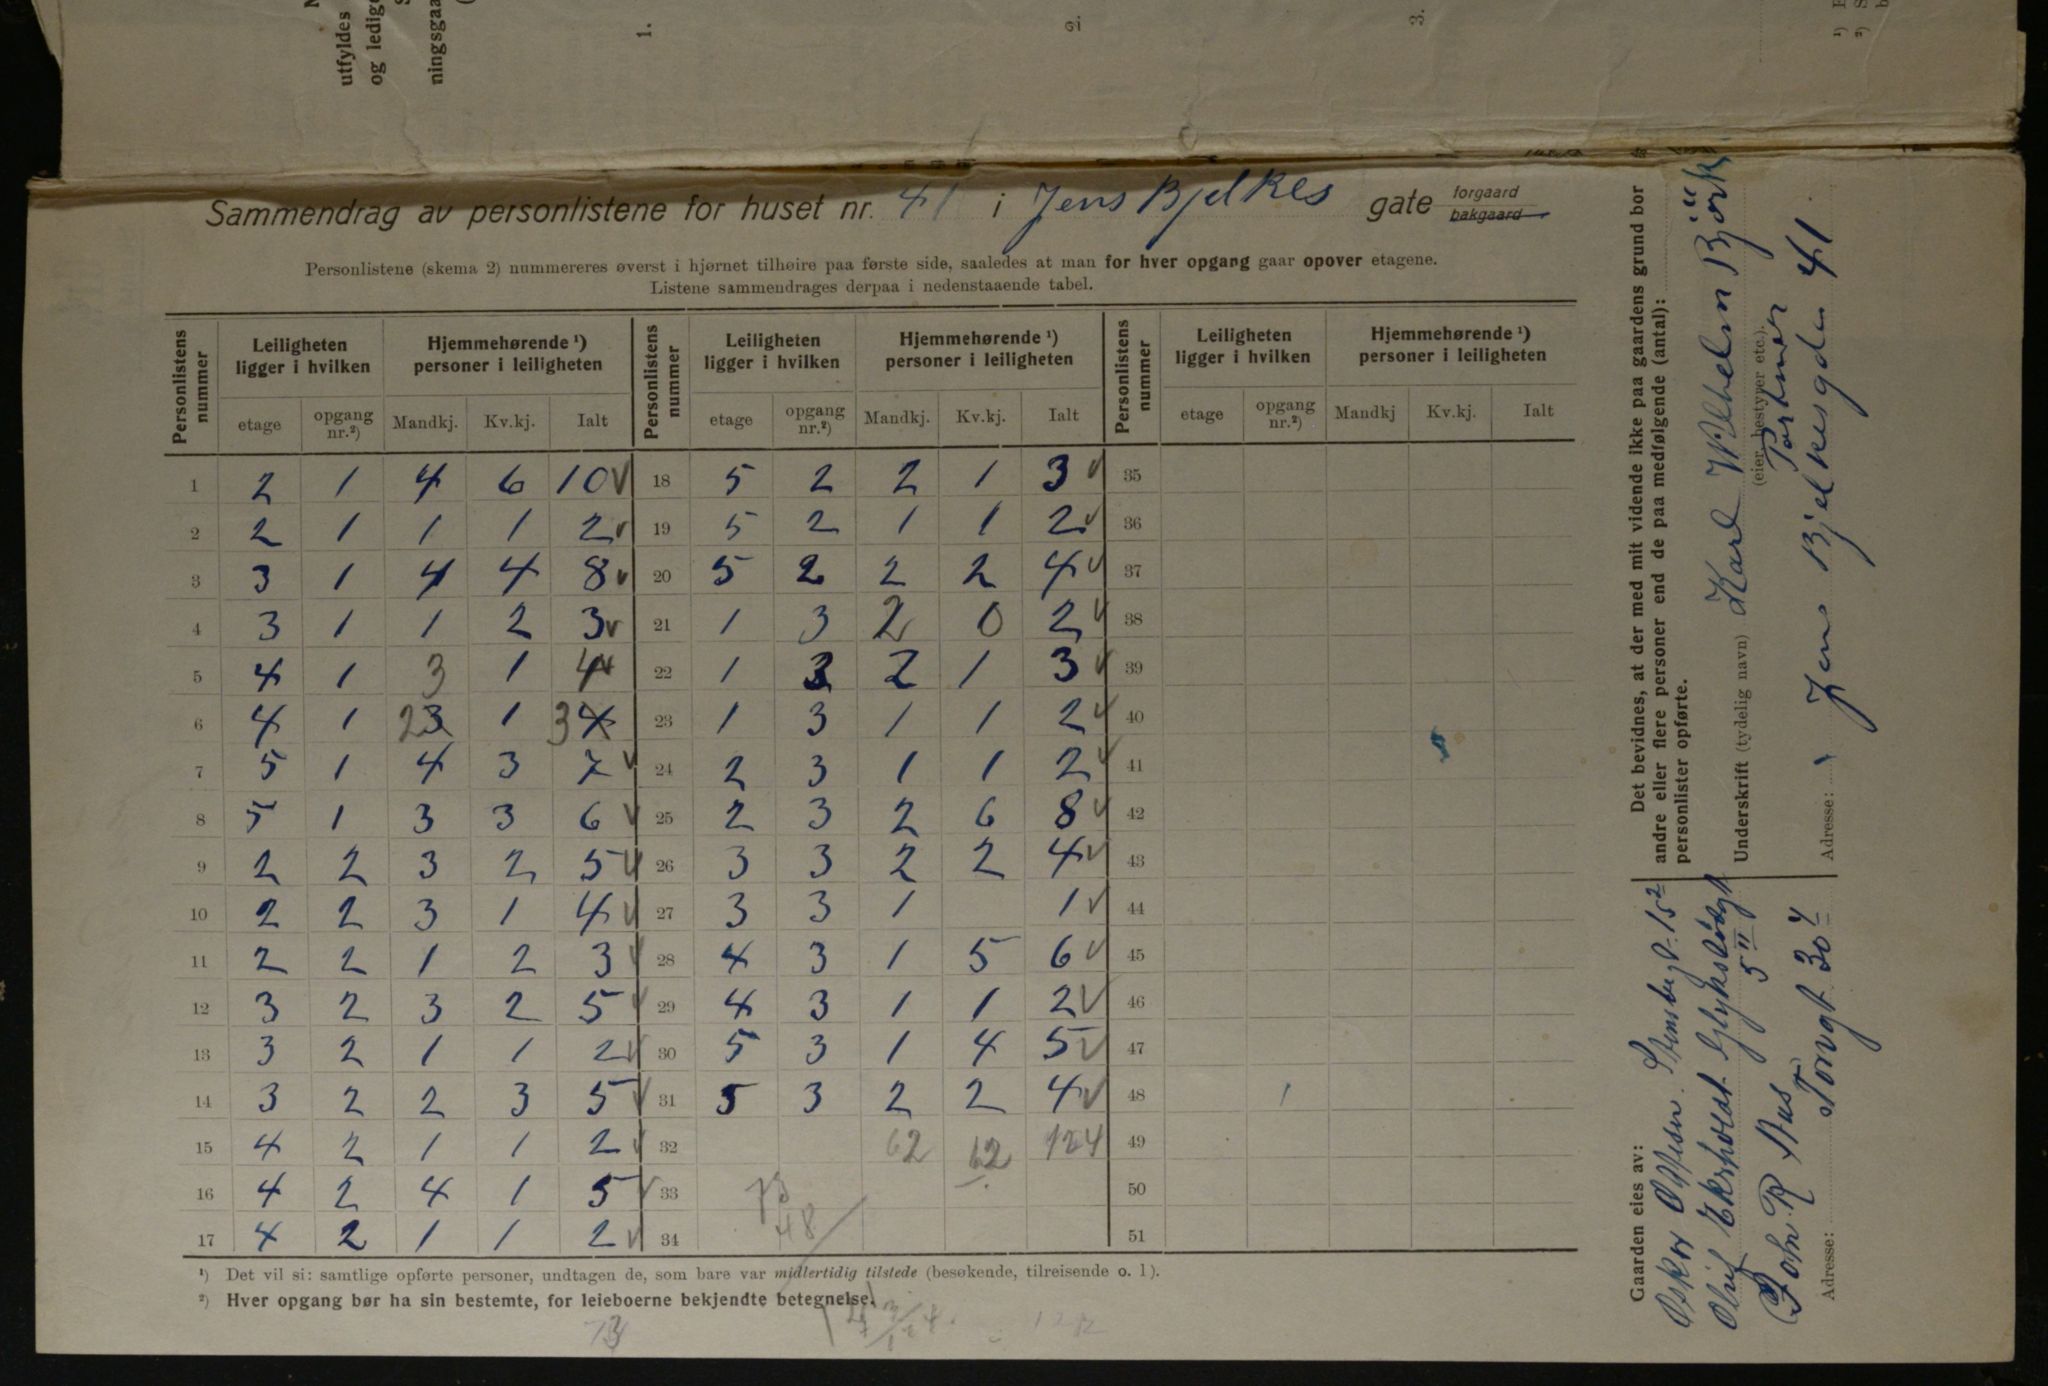 utfyldes
og ledig
ningsgaa
1.
2.
3.
Sammendrag av personlistene for huset nr. 41 i Jens Bjelkes gate forgaard
bakgaard
Personlistene (skema 2) nummereres øverst i hjørnet tilhøire paa første side, saaledes at man for hver opgang gaar opover etagene.
Listene sammendrages derpaa i nedenstaaende tabel.
Personlistens nummer | Leiligheten ligger i hvilken | Hjemmehørende ¹) personer i leiligheten | Personlistens nummer | Leiligheten ligger i hvilken | Hjemmehørende ¹) personer i leiligheten | Personlistens nummer | Leiligheten ligger i hvilken | Hjemmehørende ¹) personer i leiligheten
etage | opgang nr.²) | Mandkj. | Kv.kj. | Ialt | etage | opgang nr.²) | Mandkj. | Kv.kj. | Ialt | etage | opgang nr.²) | Mandkj | Kv.kj. | Ialt
1 2 1 4 6 10 √ 18 5 2 2 1 3 √ 35
2 2 1 1 1 2 √ 19 5 2 1 1 2 √ 36
3 3 1 4 4 8 √ 20 5 2 2 2 4 √ 37
4 3 1 1 2 3 √ 21 1 3 2 0 2 √ 38
5 4 1 3 1 4 √ 22 1 3 2 1 3 √ 39
6 4 1 2 3 1 3 4 23 1 3 1 1 2 √ 40
7 5 1 4 3 7 √ 24 2 3 1 1 2 √ 41
8 5 1 3 3 6 √ 25 2 3 2 6 8 √ 42
9 2 2 3 2 5 √ 26 3 3 2 2 4 √ 43
10 2 2 3 1 4 √ 27 3 3 1 1 √ 44
11 2 2 1 2 3 √ 28 4 3 1 5 6 √ 45
12 3 2 3 2 5 √ 29 4 3 1 1 2 √ 46
13 3 2 1 1 2 √ 30 5 3 1 4 5 √ 47
14 3 2 2 3 5 √ 31 5 3 2 2 4 √ 48
15 4 2 1 1 2 √ 32 62 62 124 49
16 4 2 4 1 5 √ 33 50
17 4 2 1 1 2 √ 34 48 51
¹) Det vil si: samtlige opførte personer, undtagen de, som bare var midlertidig tilstede (besøkende, tilreisende o. l).
²) Hver opgang bør ha sin bestemte, for leieboerne bekjendte betegnelse.
Det bevidnes, at der med mit vidende ikke paa gaardens grund bor
andre eller flere personer end de paa medfølgende (antal):
personlister opførte.
Underskrift (tydelig navn) Karl Wilhelm Björk
(eier, bestyrer etc.).
Portner
Adresse: Jens Bjelkesgde 41
Gaarden eies av:
Oskar Ottesen. Stensbergt. 15²
Oluf Ekrholdt
5 II
John R Aas
Adresse: Torvgt 30 4